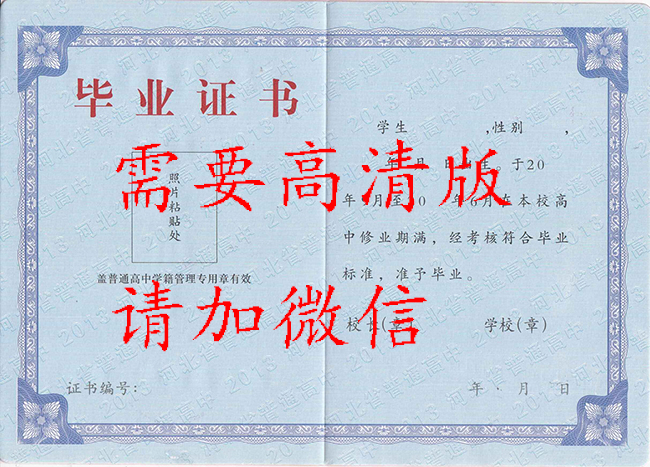 毕业证书
照片粘贴处
盖普通高中学籍管理专用章有效
证书编号：
学生 ,性别 ,
年 月 日生 于20
年9月至20 年6月在本校高
中修业期满，经考核符合毕业
标准，准予毕业。
校长(章) 学校(章)
年 月 日
需要高清版
请加微信
2013 河北省普通高中